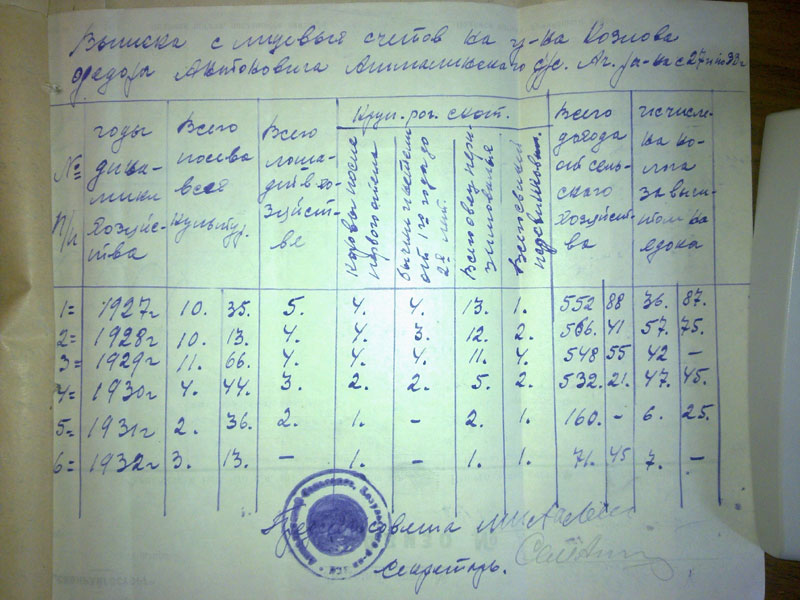 Выписка с лицевых счетов на гр-на Козлова
Федора Антоновича с/с. р-на с 27 по 32 г
№ п/п
годы динамики хозяйства
Всего посева всея культур.
Всего лошадей в хозяйстве
Круп. рог. скот.
Коровы после первого отела
Бычки и нетели от 1 го года до 2х лет.
Всего овец пере зимовалых
Всего свиней
Всего дохода от сельского хозяйства
исчислена налога за вычитом на едока
1= 1927 г 10. 35. 5. 4. 4. 13. 1. 552 88 36. 87.
2= 1928 г 10. 13. 4. 4. 3. 12. 2. 41. 57. 75.
3= 1929 г 11. 66. 4. 4. 4. 11. 4. 548 55 42 –
4= 1930 г 4. 44. 3. 2. 2. 5. 2. 532. 21. 47. 45.
5= 1931 г 2. 36. 2. 1. – 2. 1. 160. – 6. 25.
6= 1932 г 3. 13. – 1. – 1. 1. 71. 45 7. –
Пред сельсовета
Секретарь.